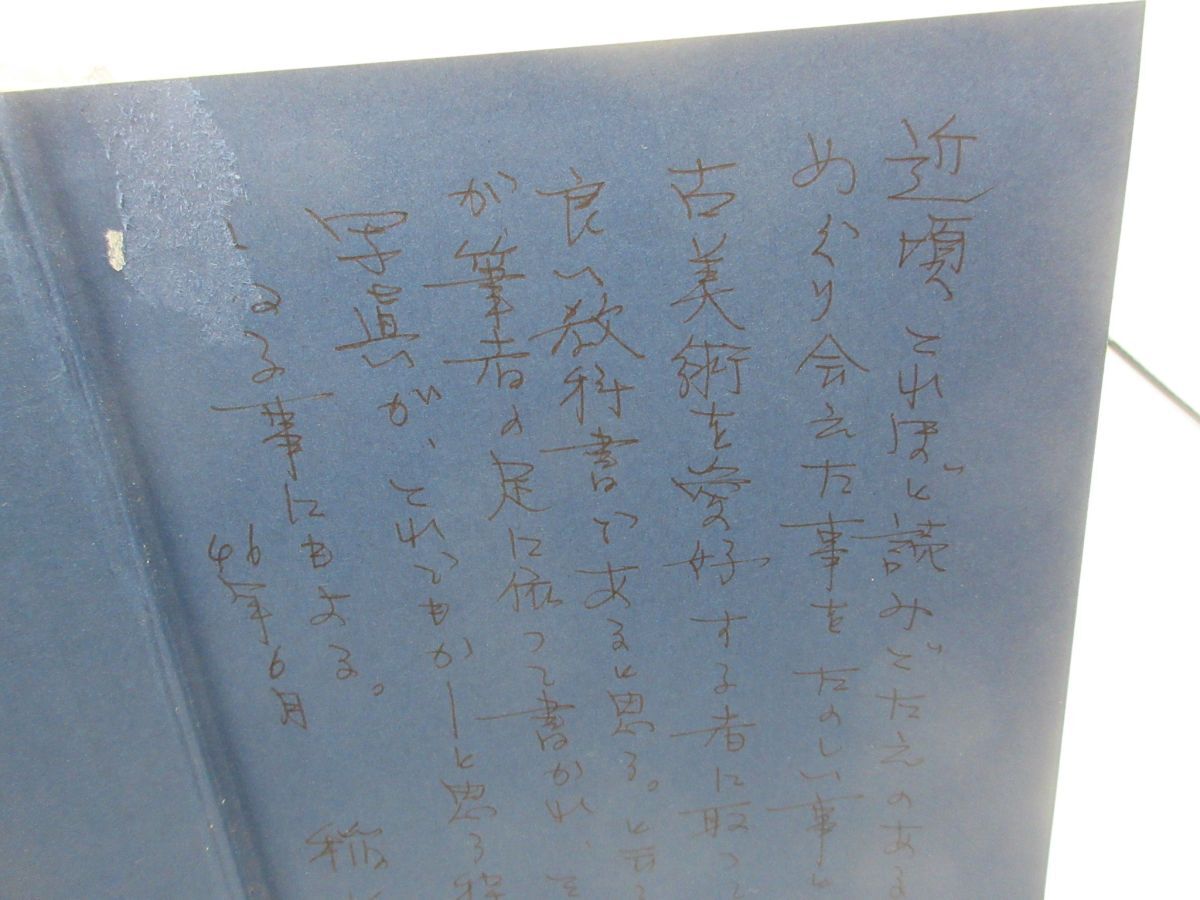 近頃、これほど読みごたえのある
めぐり会えた事をたのしい事と
古美術を愛好する者に取って
良い教科書であると思う。と云う
が筆者の足に依って書かれ、
写真が、これでもかーと思う程
いる事にもよる。
46年6月
稲